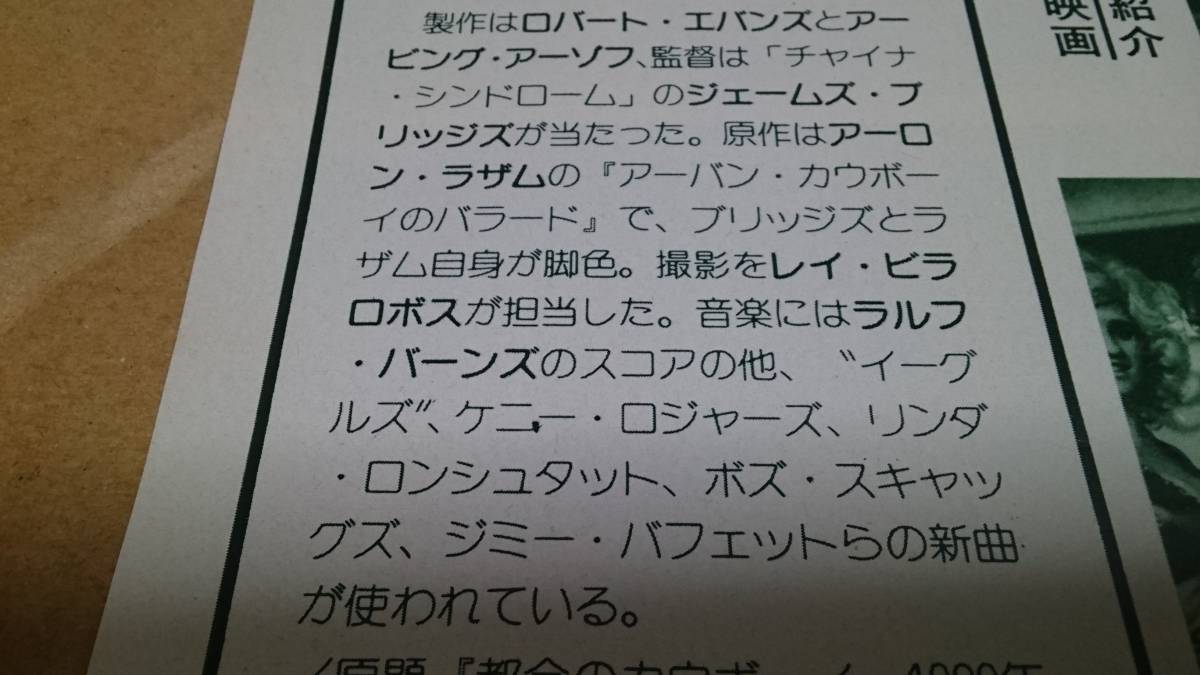 製作はロバート・エバンズとアー
ビング・アーゾフ、監督は「チャイナ
・シンドローム」のジェームズ・ブ
リッジズが当たった。原作はアーロ
ン・ラザムの『アーバン・カウボー
イのバラード』で、ブリッジズとラ
ザム自身が脚色。撮影をレイ・ビラ
ロボスが担当した。音楽にはラルフ
・バーンズのスコアの他、〝イーグ
ルズ〟、ケニー・ロジャーズ、リンダ
・ロンシュタット、ボズ・スキャッ
グズ、ジミー・バフェットらの新曲
が使われている。
紹介
映画